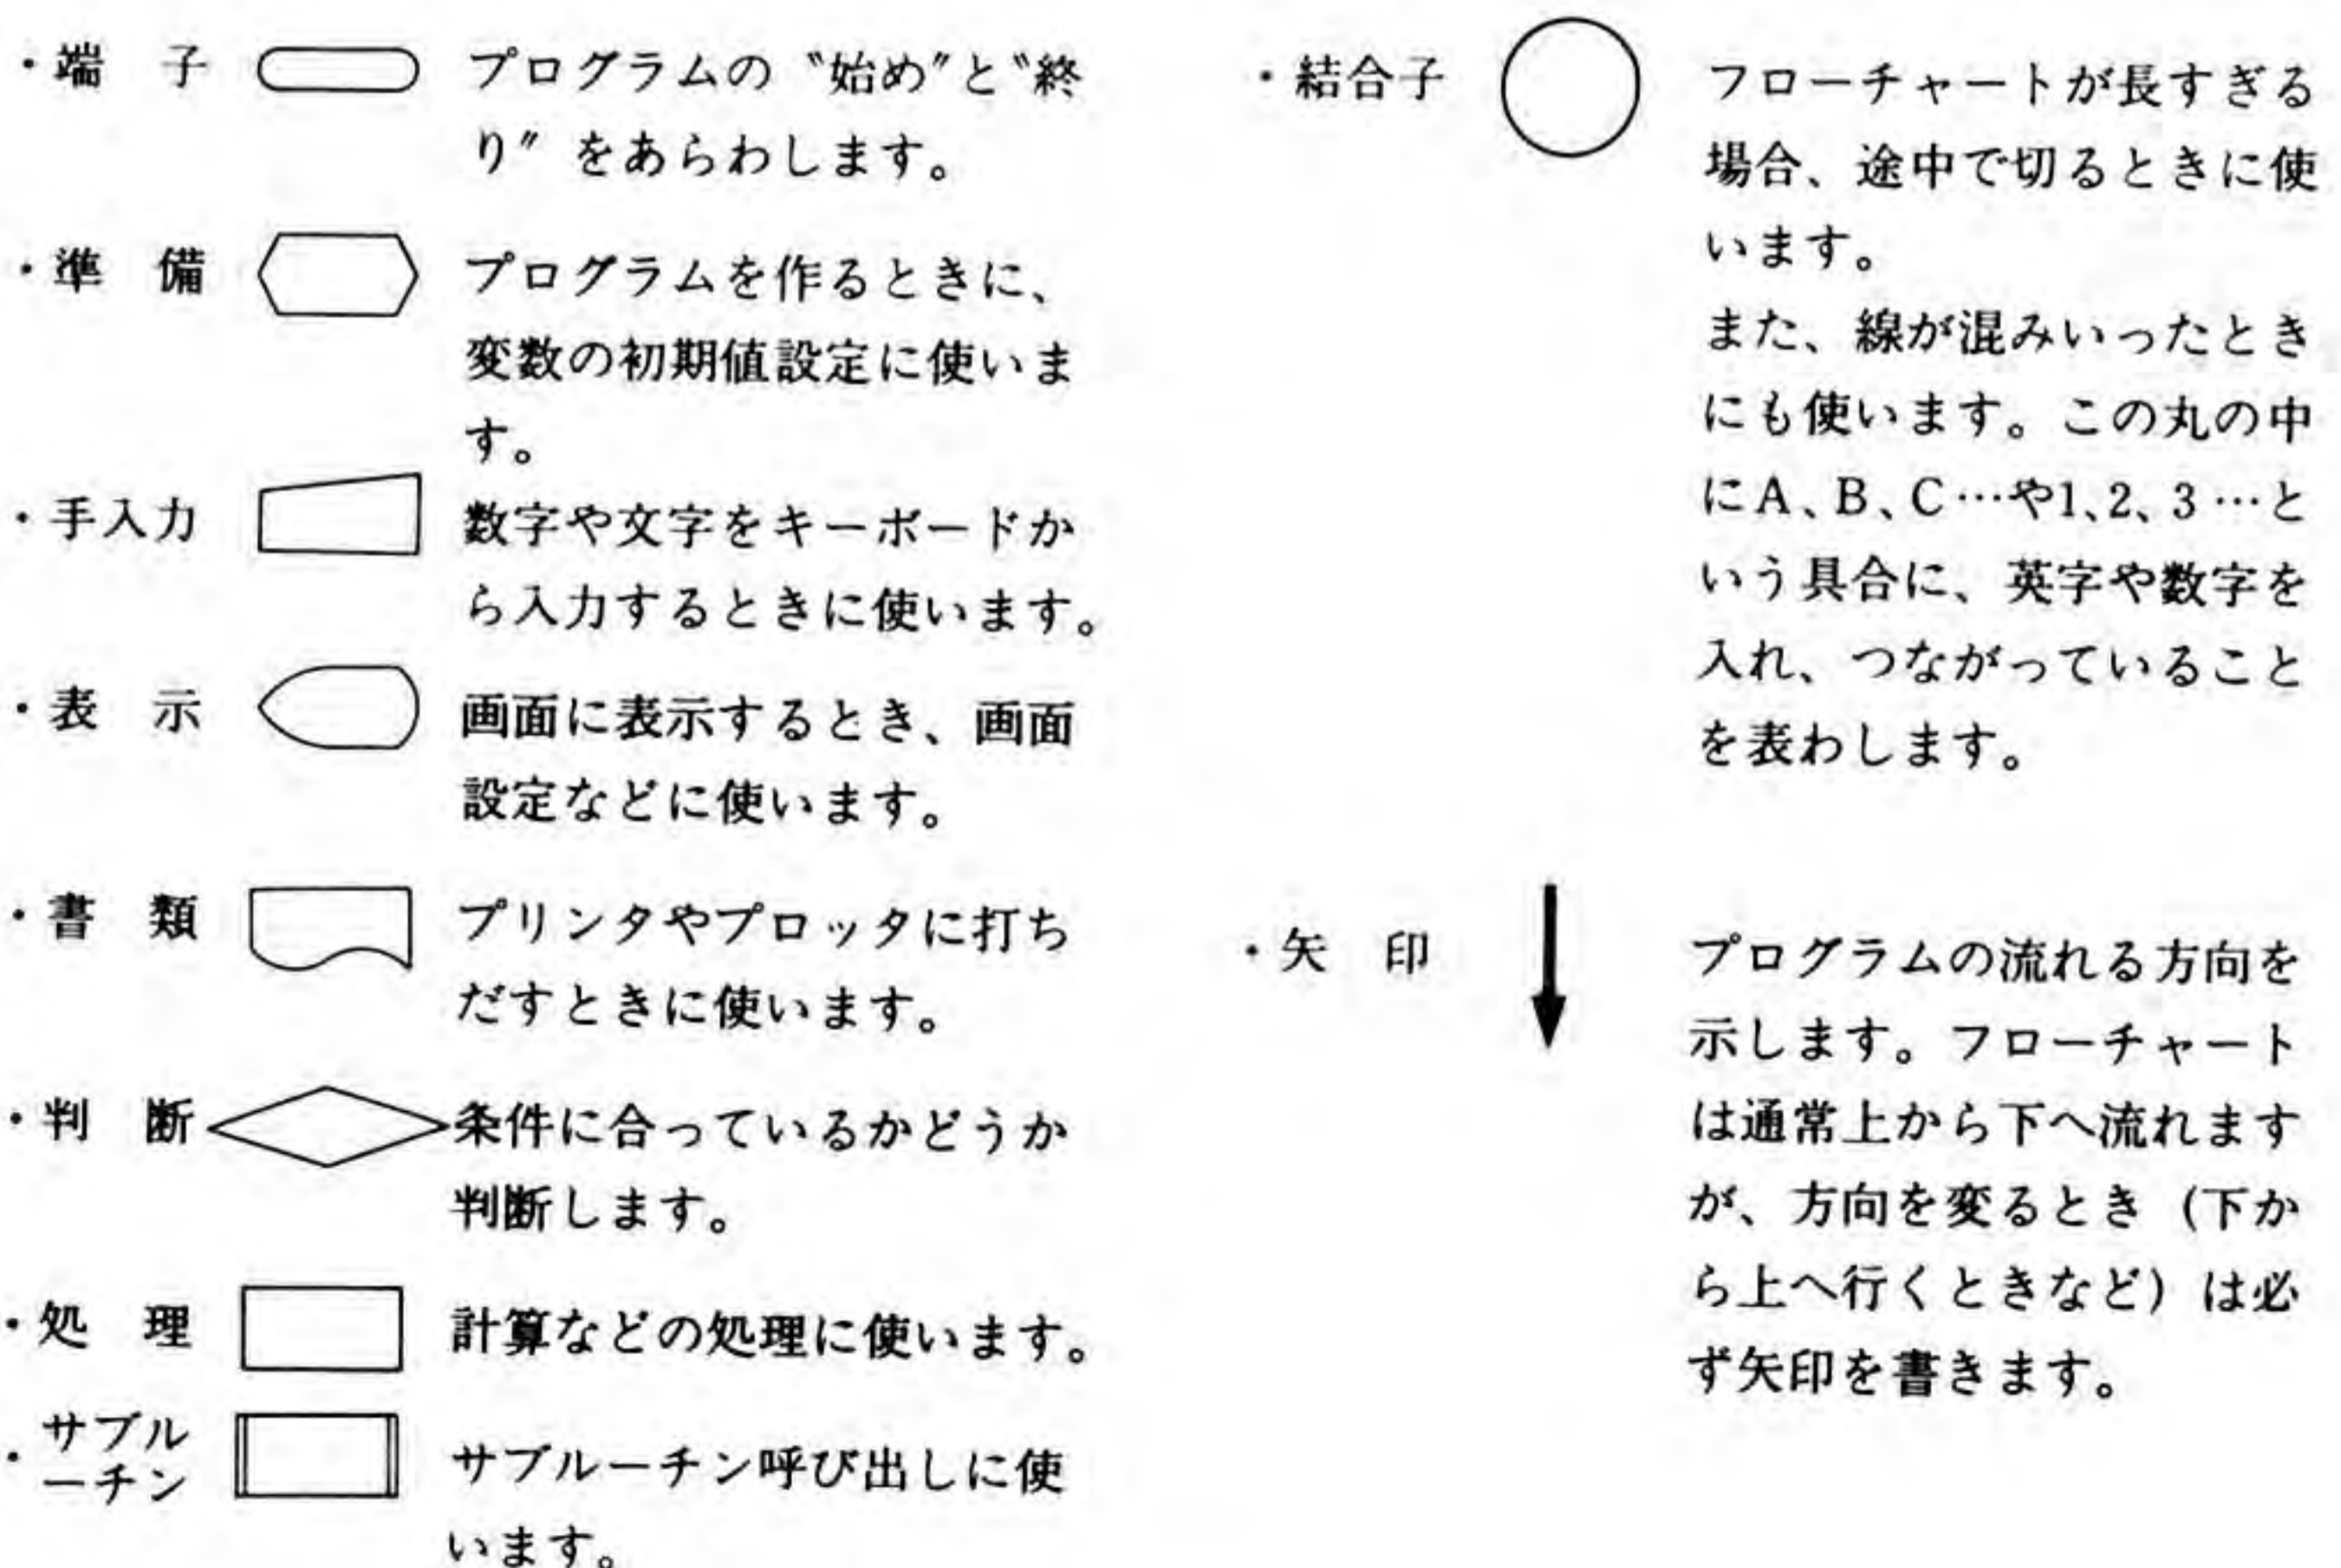 ・端　子　プログラムの〝始め〟と〝終
り〟をあらわします。
・準　備　プログラムを作るときに、
変数の初期値設定に使いま
す。
・手入力　数字や文字をキーボードか
ら入力するときに使います。
・表　示　画面に表示するとき、画面
設定などに使います。
・書　類　プリンタやプロッタに打ち
だすときに使います。
・判　断　条件に合っているかどうか
判断します。
・処　理　計算などの処理に使います。
・サブル
ーチン　サブルーチン呼び出しに使
います。
・結合子　フローチャートが長すぎる
場合、途中で切るときに使
います。
また、線が混みいったとき
にも使います。この丸の中
にA、B、C…や1、2、3…と
いう具合に、英字や数字を
入れ、つながっていること
を表わします。
・矢　印　プログラムの流れる方向を
示します。フローチャート
は通常上から下へ流れます
が、方向を変るとき（下か
ら上へ行くときなど）は必
ず矢印を書きます。